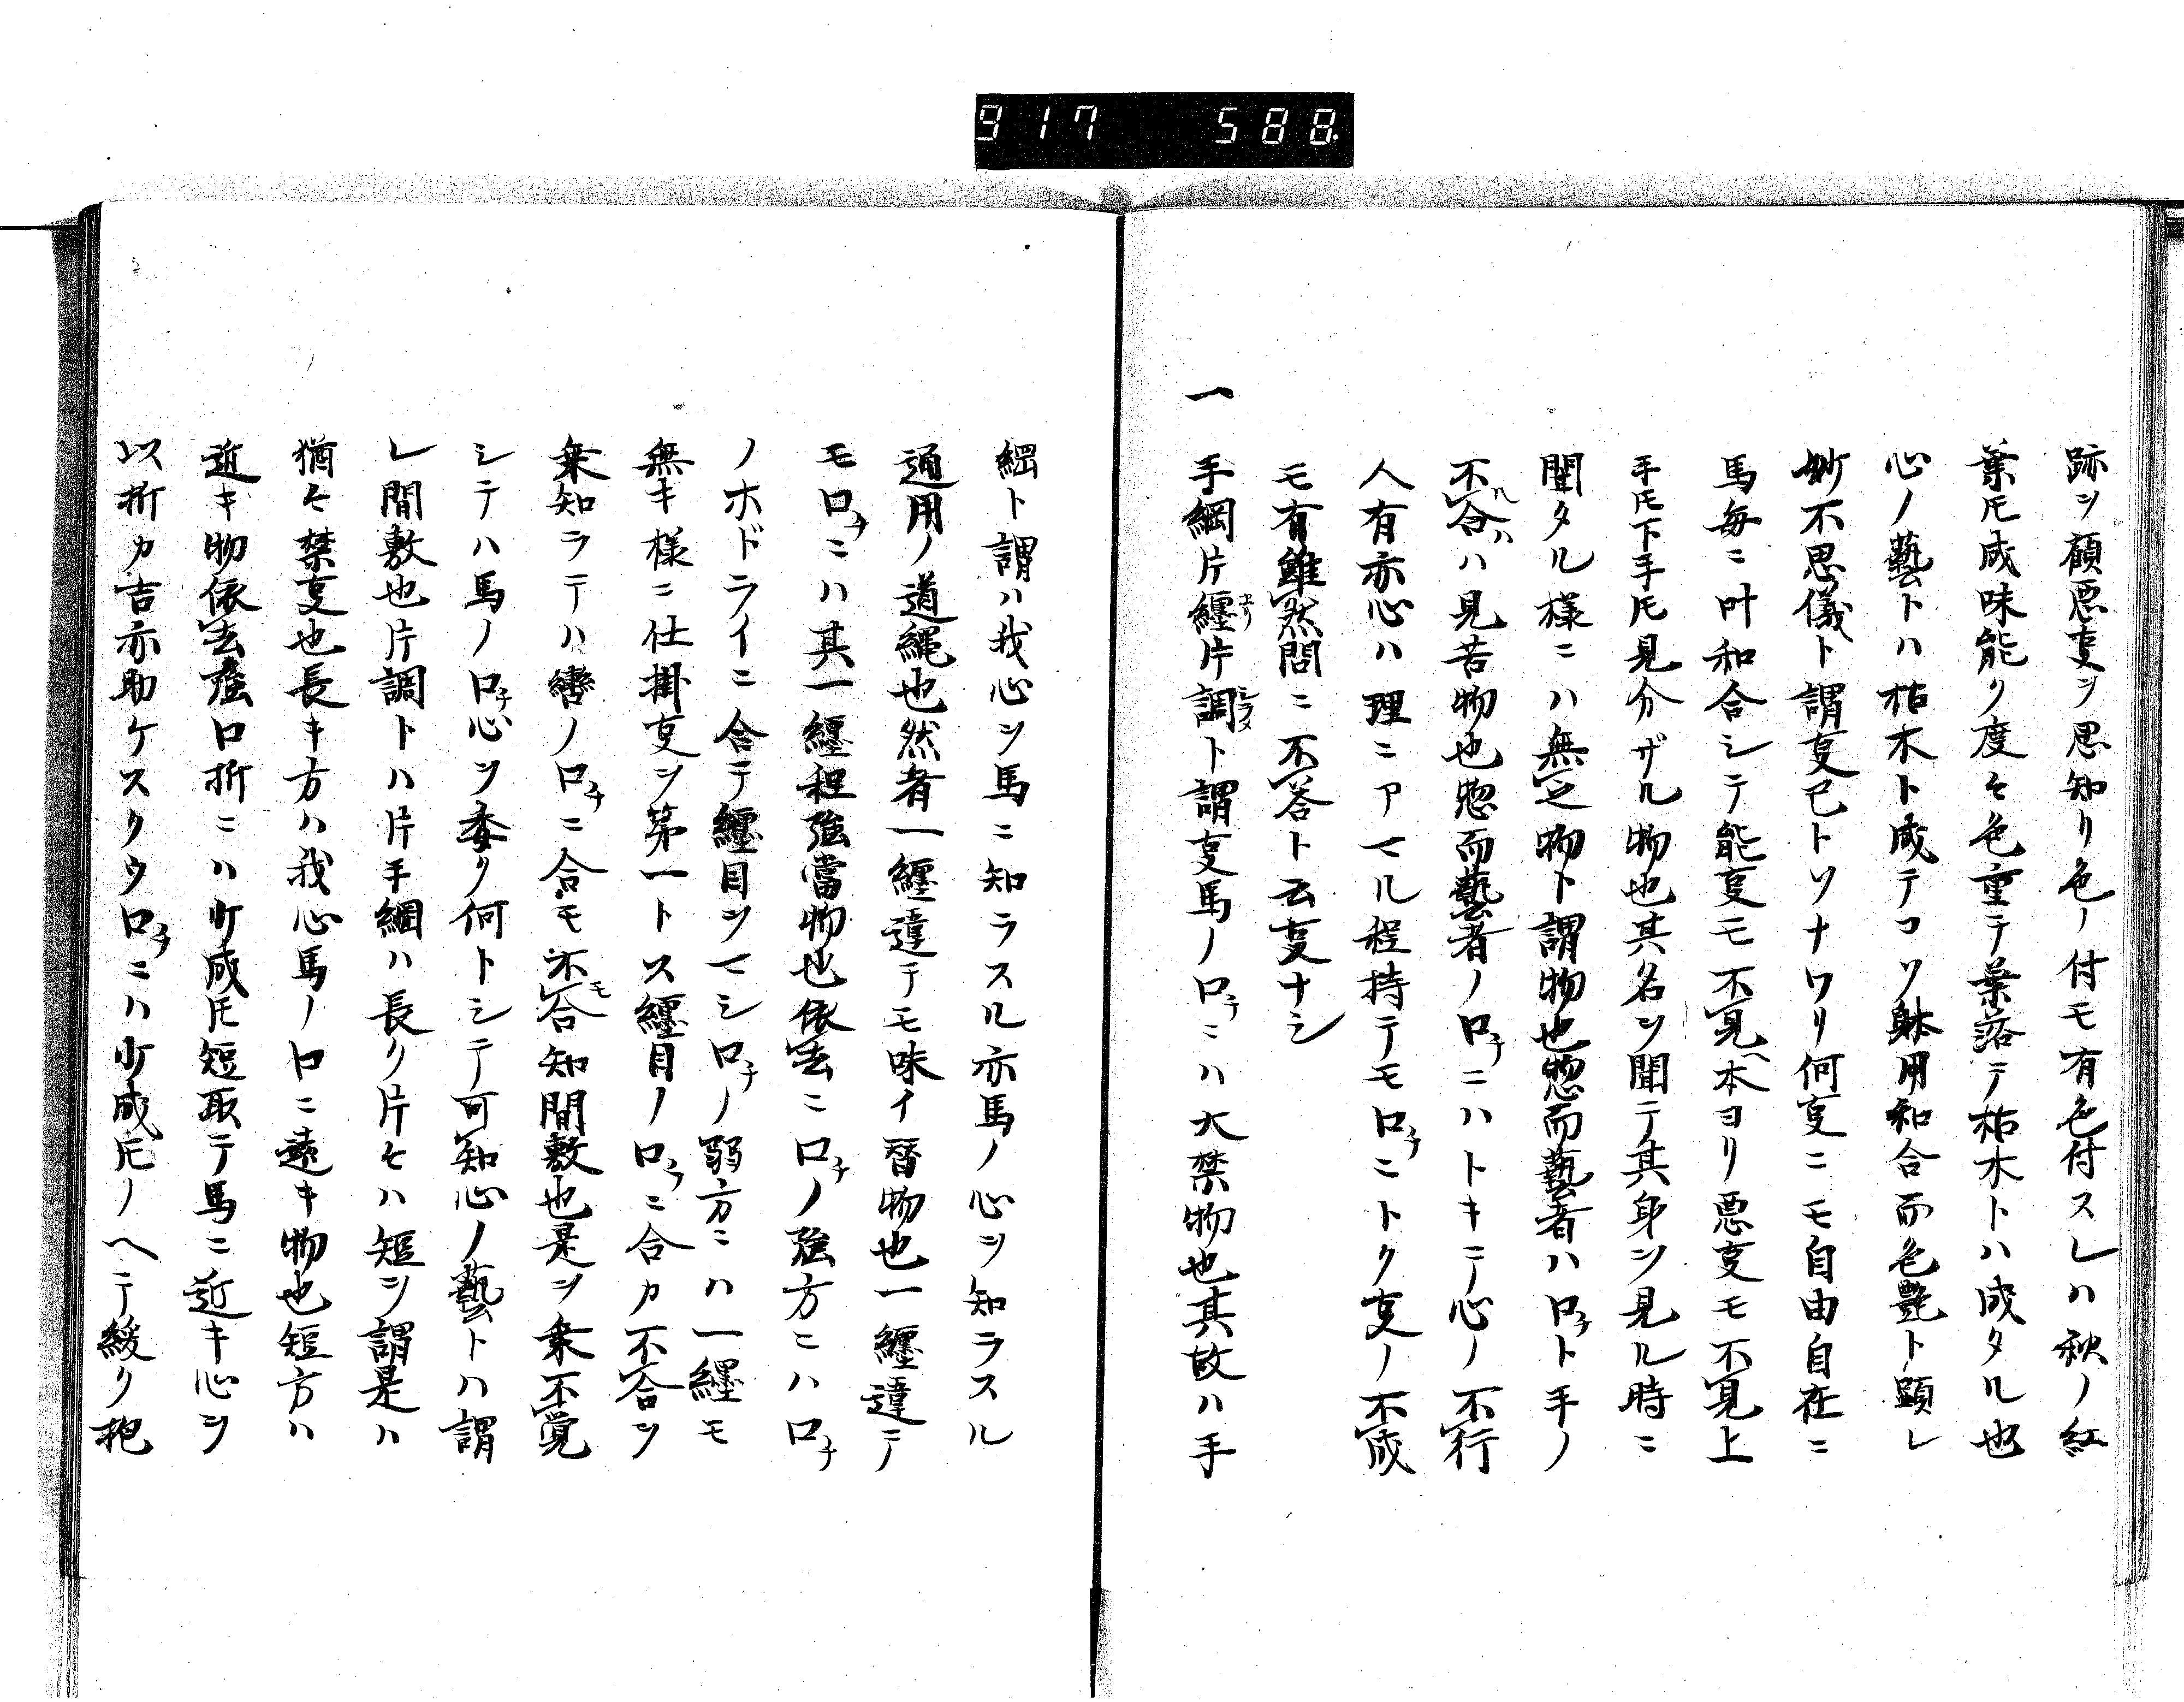 917 588.
跡ヲ顧悪叓ヲ思知リ色ノ付モ有色付スレハ秋ノ紅
葉𪜈成味能ク度々色重テ葉落テ枯木トハ成タル也
心ノ藝トハ枯木ト成テコソ躰用和合而色艶ト顕レ
妙不思儀ト謂叓已トソナワリ何叓ニモ自由自在ニ
馬毎ニ叶和合シテ能叓モ不見ヘ本ヨリ悪叓モ不見上
手𪜈下手𪜈見分ザル物也其名ヲ聞テ其身ヲ見ル時ニ
聞タル様ニハ無之物ト謂物也惣而藝者ハ口チト手ノ
不ル合ハハ見苦物也惣而藝者ノ口チニハトキニノ心ノ不行
人有亦心ハ理ニアマル程持テモ口チニトク叓ノ不成
モ有雖然問ニ不答ト云叓ナシ
一 手綱片纒エリ片調シラメト謂叓馬ノ口チニハ大禁物也其故ハ手
綱ト謂ハ我心ヲ馬ニ知ラスル亦馬ノ心ヲ知ラスル
通用ノ道縄也然者一纒違テモ味イ替物也一纒違テ
モ口チニハ其一纒程強當物也依去ニ口チノ強方ニハ口チ
ノホドライニ合テ纒目ヲマシ口チノ弱方ニハ一纒モ
無キ様ニ仕掛叓ヲ第一トス纒目ノ口チニ合カ不合ヲ
乗知ラテハ轡ノ口チニ合モ不モ合知間敷也是ヲ乗不覚
シテハ馬ノ口チ心ヲ委ク何トシテ可知心ノ藝トハ謂
レ間敷也片調トハ片手綱ハ長ク片々ハ短ヲ謂是ハ
猶々禁叓也長キ方ハ我心馬ノ口ニ遠キ物也短方ハ
近キ物依去強口折ニハ少成𪜈短取テ馬ニ近キ心ヲ
以折カ吉亦助ケスクウ口チニハ少成𪜈ノヘテ緩ク抱